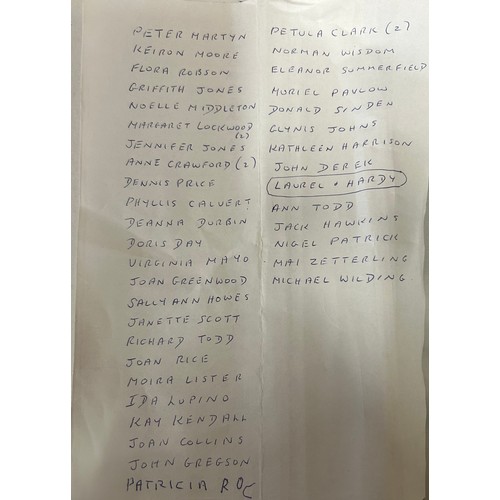 PETER MARTYN
KEIRON MOORE
FLORA ROBSON
GRIFFITH JONES
NOELLE MIDDLETON
MARGARET LOCKWOOD (2)
JENNIFER JONES
ANNE CRAWFORD (2)
DENNIS PRICE
PHYLLIS CALVERT
DEANNA DURBIN
DORIS DAY
VIRGINIA MAYO
JOAN GREENWOOD
SALLY ANN HOWES
JANETTE SCOTT
RICHARD TODD
JOAN RICE
MOIRA LISTER
IDA LUPINO
KAY KENDALL
JOAN COLLINS
JOHN GREGSON
PATRICIA ROC
PETULA CLARK (2)
NORMAN WISDOM
ELEANOR SUMMERFIELD
MURIEL PAVLOW
DONALD SINDEN
GLYNIS JOHNS
KATHLEEN HARRISON
JOHN DEREK
LAUREL + HARDY
ANN TODD
JACK HAWKINS
NIGEL PATRICK
MAI ZETTERLING
MICHAEL WILDING